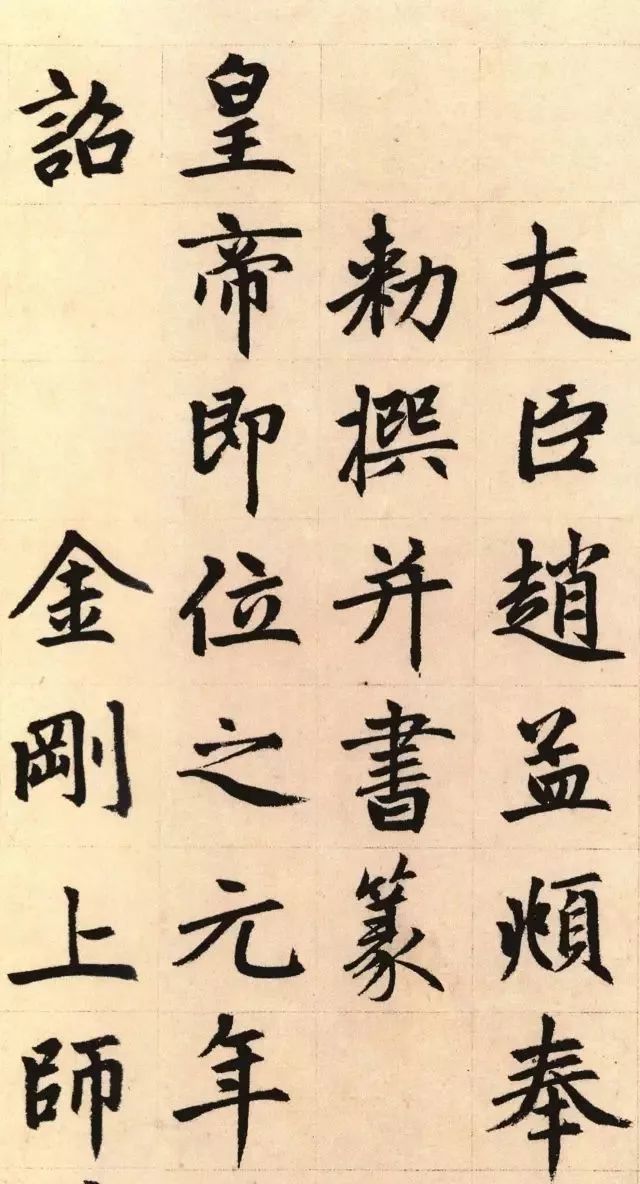 夫臣趙孟頫奉
勅撰并書篆
皇帝即位之元年
詔金剛上師